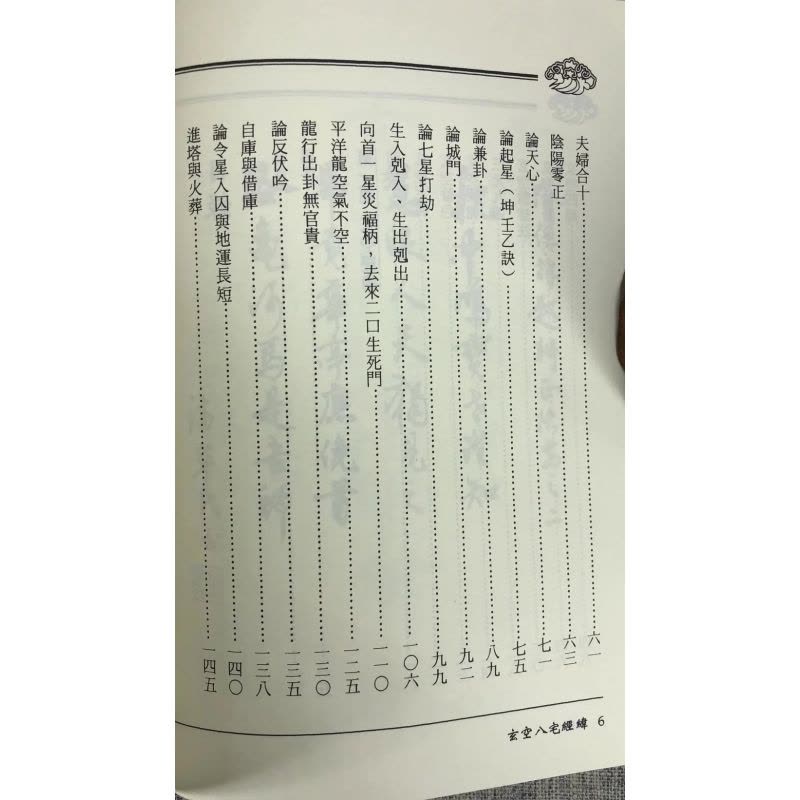 夫婦合十……六一
陰陽零正……六三
論天心……七一
論起星（坤壬乙訣）……七五
論兼卦……八九
論城門……九二
論七星打劫……九九
生入剋入、生出剋出……一〇六
向首一星災福柄，去來二口生死門……一一〇
平洋龍空氣不空……一二五
龍行出卦無官貴……一三〇
論反伏吟……一三五
自庫與借庫……一三八
論令星入囚與地運長短……一四〇
進塔與火葬……一四五
玄空八宅經緯 6